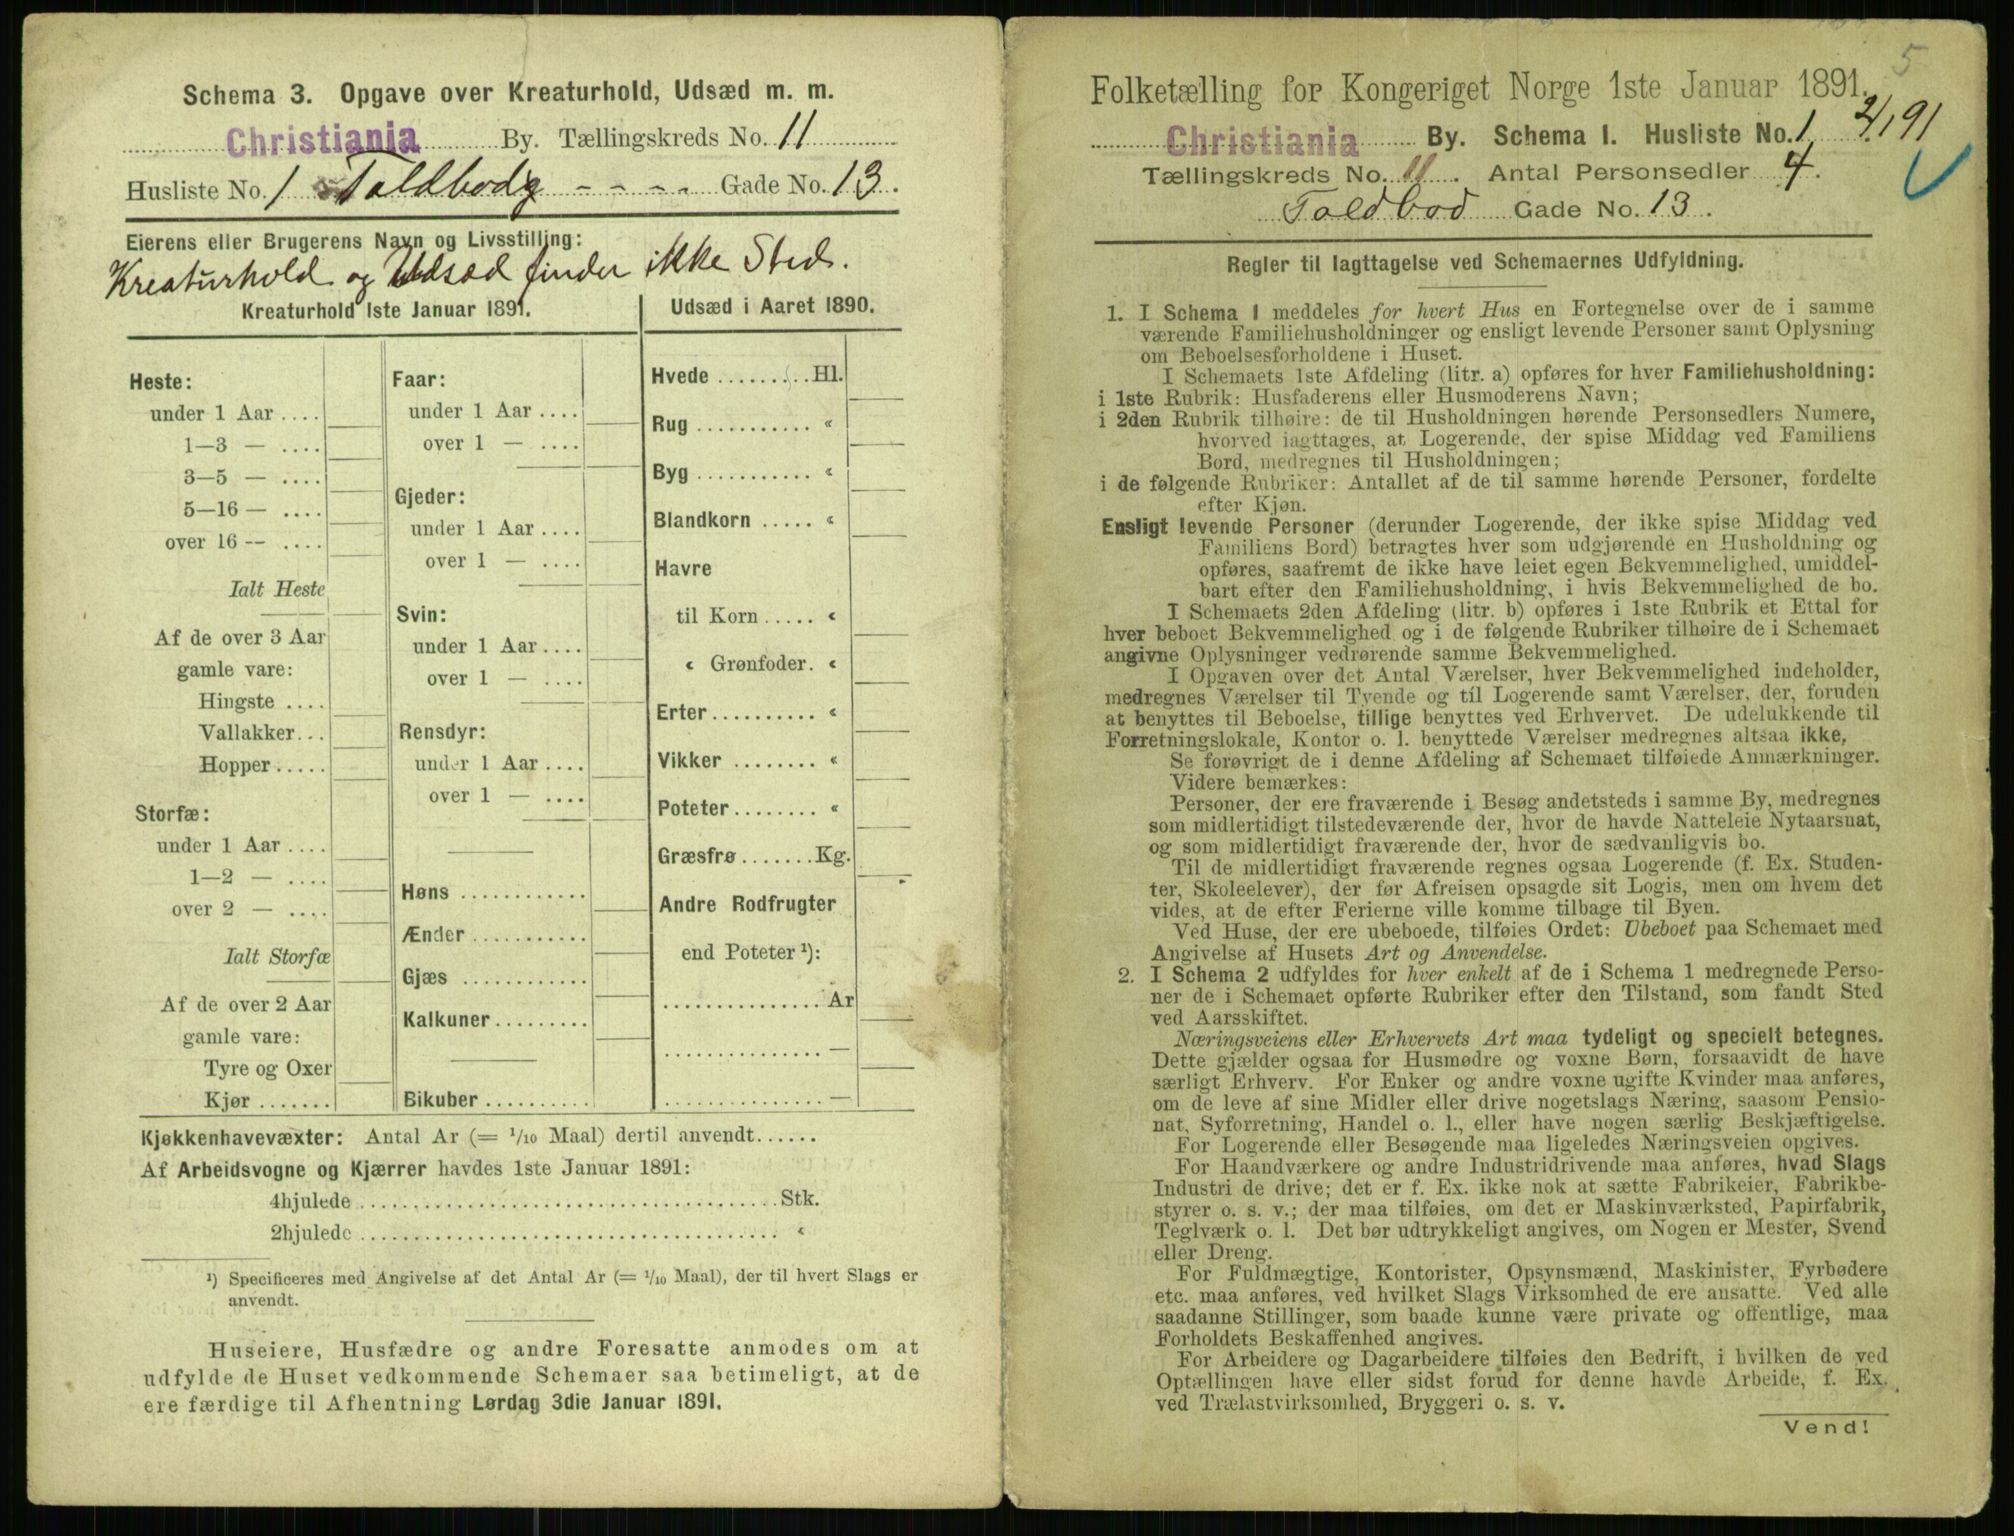 Schema 3. Opgave over Kreaturhold, Udsæd m. m.
Christiania By. Tællingskreds No. 11
Husliste No. 1 Toldbodg - - - - Gade No. 13.
Eierens eller Brugerens Navn og Livsstilling:
Kreaturhold og Udsæd finder ikke Sted.
Kreaturhold 1ste Januar 1891.
Heste:
under 1 Aar ....
1—3 — ....
3—5 — ....
5—16 — ....
over 16 -- ....
Ialt Heste
Af de over 3 Aar
gamle vare:
Hingste ....
Vallakker...
Hopper.....
Storfæ:
under 1 Aar ....
1—2 — ....
over 2 — ....
Ialt Storfæ
Af de over 2 Aar
gamle vare:
Tyre og Oxer
Kjør .......
Faar:
under 1 Aar ....
over 1 — ....
Gjeder:
under 1 Aar ....
over 1 — ....
Svin:
under 1 Aar ....
over 1 — ....
Rensdyr:
under 1 Aar ....
over 1 — ....
Høns ............
Ænder ...........
Gjæs ............
Kalkuner.........
Bikuber ..........
Udsæd i Aaret 1890.
Hvede ......... Hl.
Rug ........... «
Byg ........... «
Blandkorn ..... «
Havre
til Korn ..... «
« Grønfoder. «
Erter.......... «
Vikker ........ «
Poteter........ «
Græsfrø.......Kg.
Andre Rodfrugter
end Poteter ¹):
............... Ar
............... —
............... —
Kjøkkenhavevæxter: Antal Ar (= 1/10 Maal) dertil anvendt......
Af Arbeidsvogne og Kjærrer havdes 1ste Januar 1891:
4hjulede ....................................Stk.
2hjulede .................................... «
¹) Specificeres med Angivelse af det Antal Ar (= 1/10 Maal), der til hvert Slags er
anvendt.
Huseiere, Husfædre og andre Foresatte anmodes om at
udfylde de Huset vedkommende Schemaer saa betimeligt, at de
ere færdige til Afhentning Lørdag 3die Januar 1891.
5
Folketælling for Kongeriget Norge 1ste Januar 1891.
Christiania By. Schema 1. Husliste No. 1 2/1 91
Tællingskreds No. 11. Antal Personsedler 4.
Toldbod Gade No. 13.
Regler til Iagttagelse ved Schemaernes Udfyldning.
1. I Schema 1 meddeles for hvert Hus en Fortegnelse over de i samme
værende Familiehusholdninger og ensligt levende Personer samt Oplysning
om Beboelsesforholdene i Huset.
I Schemaets 1ste Afdeling (litr. a) opføres for hver Familiehusholdning:
i 1ste Rubrik: Husfaderens eller Husmoderens Navn;
i 2den Rubrik tilhøire: de til Husholdningen hørende Personsedlers Numere,
hvorved iagttages, at Logerende, der spise Middag ved Familiens
Bord, medregnes til Husholdningen;
i de følgende Rubriker: Antallet af de til samme hørende Personer, fordelte
efter Kjøn.
Ensligt levende Personer (derunder Logerende, der ikke spise Middag ved
Familiens Bord) betragtes hver som udgjørende en Husholdning og
opføres, saafremt de ikke have leiet egen Bekvemmelighed, umiddel-
bart efter den Familiehusholdning, i hvis Bekvemmelighed de bo.
I Schemaets 2den Afdeling (litr. b) opføres i 1ste Rubrik et Ettal for
hver beboet Bekvemmelighed og i de følgende Rubriker tilhøire de i Schemaet
angivne Oplysninger vedrørende samme Bekvemmelighed.
I Opgaven over det Antal Værelser, hver Bekvemmelighed indeholder,
medregnes Værelser til Tyende og til Logerende samt Værelser, der, foruden
at benyttes til Beboelse, tillige benyttes ved Erhvervet. De udelukkende til
Forretningslokale, Kontor o. l. benyttede Værelser medregnes altsaa ikke.
Se forøvrigt de i denne Afdeling af Schemaet tilføiede Anmærkninger.
Videre bemærkes:
Personer, der ere fraværende i Besøg andetsteds i samme By, medregnes
som midlertidigt tilstedeværende der, hvor de havde Natteleie Nytaarsnat,
og som midlertidigt fraværende der, hvor de sædvanligvis bo.
Til de midlertidigt fraværende regnes ogsaa Logerende (f. Ex. Studen-
ter, Skoleelever), der før Afreisen opsagde sit Logis, men om hvem det
vides, at de efter Ferierne ville komme tilbage til Byen.
Ved Huse, der ere ubeboede, tilføies Ordet: Ubeboet paa Schemaet med
Angivelse af Husets Art og Anvendelse.
2. I Schema 2 udfyldes for hver enkelt af de i Schema 1 medregnede Perso-
ner de i Schemaet opførte Rubriker efter den Tilstand, som fandt Sted
ved Aarsskiftet.
Næringsveiens eller Erhvervets Art maa tydeligt og specielt betegnes.
Dette gjælder ogsaa for Husmødre og voxne Børn, forsaavidt de have
særligt Erhverv. For Enker og andre voxne ugifte Kvinder maa anføres,
om de leve af sine Midler eller drive nogetslags Næring, saasom Pensio-
nat, Syforretning, Handel o. l., eller have nogen særlig Beskjæftigelse.
For Logerende eller Besøgende maa ligeledes Næringsveien opgives.
For Haandværkere og andre Industridrivende maa anføres, hvad Slags
Industri de drive; det er f. Ex. ikke nok at sætte Fabrikeier, Fabrikbe-
styrer o. s. v.; der maa tilføies, om det er Maskinværksted, Papirfabrik,
Teglværk o. l. Det bør udtrykkeligt angives, om Nogen er Mester, Svend
eller Dreng.
For Fuldmægtige, Kontorister, Opsynsmænd, Maskinister, Fyrbødere
etc. maa anføres, ved hvilket Slags Virksomhed de ere ansatte. Ved alle
saadanne Stillinger, som baade kunne være private og offentlige, maa
Forholdets Beskaffenhed angives.
For Arbeidere og Dagarbeidere tilføies den Bedrift, i hvilken de ved
Optællingen have eller sidst forud for denne havde Arbeide, f. Ex.
ved Trælastvirksomhed, Bryggeri o. s. v.
Vend!